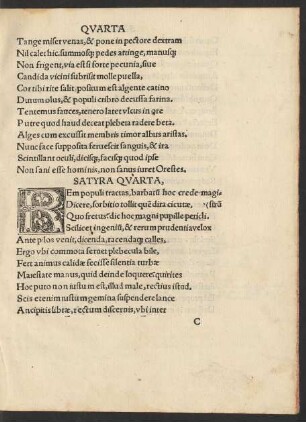 QVARTA
Tange miser venas, & pone in pectore dextram
Nil calet hic, summosq; pedes attinge, manusq;
Non frigent, visa est si forte pecunia, siue
Candida vicini subrisit molle puella,
Cor tibi rite salit. positum est algente catino
Durum olus, & populi cribro decussa farina.
Tentemus fauces, tenero latet vlcus in ore
Putre quod haud deceat plebeia radere beta.
Alges cum excussit membris timor albus aristas,
Nunc face supposita feruescit sanguis, & ira
Scintillant oculi, dicisq; facisq; quod ipse
Non sani esse hominis, non sanus iuret Orestes.
SATYRA QVARTA,
REm populi tractas, barbatū hoc crede magi-
(strū
Dicere, sorbitio tollit quē dira cicutæ,
Quo fretus? dic hoc magni pupille pericli.
Scilicet ingeniū, & rerum prudentia velox
Ante pilos venit, dicenda, tacendaq; calles.
Ergo vbi commota feruet plebecula bile,
Fert animus calidæ fecisse silentia turbæ
Maiestate manus, quid deinde loquere? quirites
Hoc puto non iustum est, illud male, rectius istud.
Scis etenim iustum gemina suspendere lance
Ancipitis libræ, rectum discernis, vbi inter
C